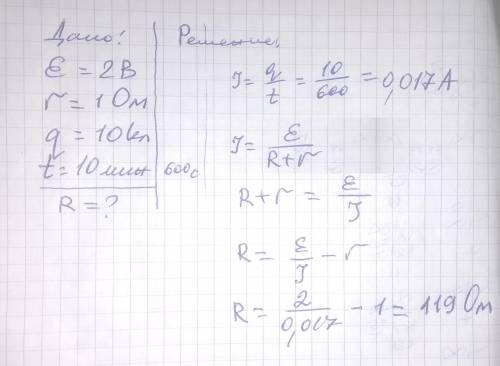 Дано:
ε = 2В
r = 1 Ом
q = 10 Кл
t = 10 мин 600с
R = ?
Решение:
I = q/t = 10/600 = 0,017 А
I = ε/(R+r)
R+r = ε/I
R = ε/I − r
R = 2/0,017 − 1 = 119 Ом